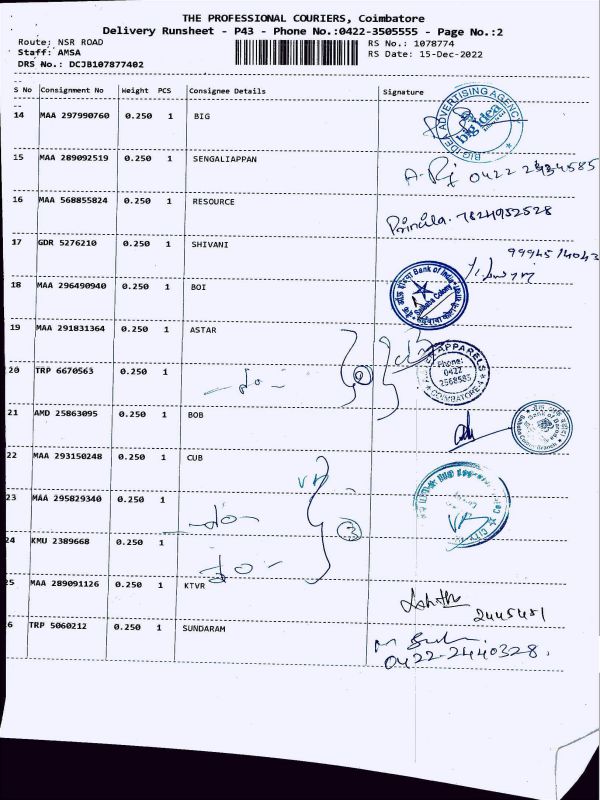 THE PROFESSIONAL COURIERS, Coimbatore
Delivery Runsheet - P43 - Phone No.:0422-3505555 - Page No.:2
Route: NSR ROAD
Staff: AMSA
DRS No.: DCJB107877402
RS No.: 1078774
RS Date: 15-Dec-2022
S No Consignment No Weight PCS Consignee Details Signature
14 MAA 297990760 0.250 1 BIG
BIG IDEA ADVERTISING AGENCY
big idea
15 MAA 289092519 0.250 1 SENGALIAPPAN
16 MAA 568855824 0.250 1 RESOURCE
7824952528
17 GDR 5276210 0.250 1 SHIVANI
18 MAA 296490940 0.250 1 BOI
Bank of India
Saibaba Colony
19 MAA 291831364 0.250 1 ASTAR
20 TRP 6670563 0.250 1
APPARELS
Phone:
0422
2568585
COIMBATORE-4
21 AMD 25863095 0.250 1 BOB
22 MAA 293150248 0.250 1 CUB
23 MAA 295829340 0.250 1
3
24 KMU 2389668 0.250 1
25 MAA 289091126 0.250 1 KTVR
2445451
6 TRP 5060212 0.250 1 SUNDARAM
0422-2440328.